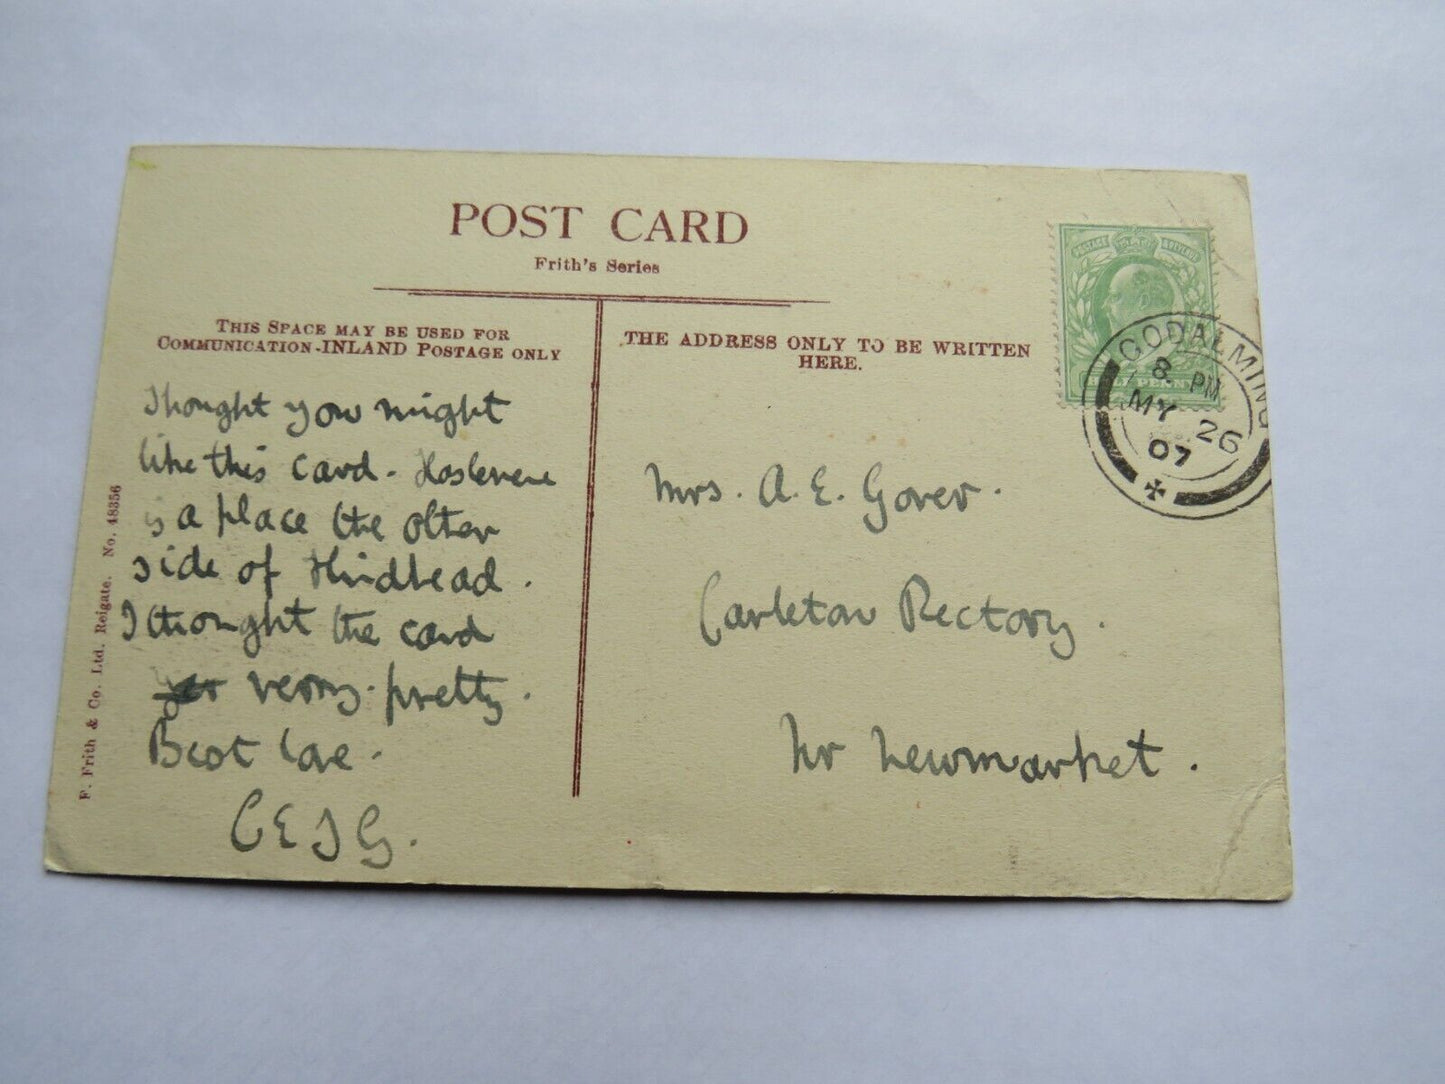 POST CARD
Frith's Series
THIS SPACE MAY BE USED FOR
COMMUNICATION-INLAND POSTAGE ONLY
THE ADDRESS ONLY TO BE WRITTEN
HERE.
POSTAGE & REVENUE
HALF PENNY
GODALMING
8. PM
MY 26
07
I hought you might
like this card - Haslemere
is a place the other
side of Hindhead.
I thought the card
very pretty.
Best love.
C E J G.
Mrs. A. E. Gover.
Carleton Rectory.
Nr Newmarket.
F. Frith & Co. Ltd. Reigate. No. 48356